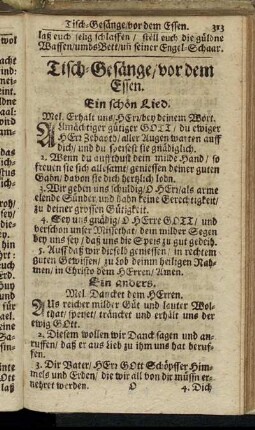 Tisch-Gesänge/vor dem Essen. 313
laß euch selig schlaffen / stell euch die güldne
Waffen/umbs Bett/un seiner Engel-Schaar.
Tisch-Gesänge/vor dem
Essen.
Ein schön Lied.
Mel. Erhalt uns/HErr/bey deinem Wort.
ALlmächtiger gütiger GOTT/ du ewiger
HErr Zebaoth/ aller Augen warten auff
dich/ und du speisest sie gnädiglich.
2. Wenn du auffthust dein milde Hand/ so
freuen sie sich allesamt/ geniessen deiner guten
Gabn/ davon sie dich hertzlich lobn.
3. Wir geben uns schuldig/O HErr/als arme
elende Sünder und habn keine Gerechtigkeit/
zu deiner grossen Gütigkeit.
4. Sey uns gnädig/O HErre GOTT/ und
verschon unser Missethat/ dein milder Segen
bey uns sey/ daß uns die Speis zu gut gedeih.
5. Auff daß wir dieselb geniessen/ in rechtem
guten Gewissen/ zu Lob deinm heiligen Nah-
men/ in Christo dem HErren/Amen.
Ein anders.
Mel. Dancket dem HErren.
AUs reicher milder Güt und lauter Wol-
that/ speiset/ träncket und erhält uns der
ewig GOtt.
2. Diesem wollen wir Danck sagen und an-
ruffen/ daß er aus Lieb zu ihm uns hat beruf-
fen.
3. Dir Vater/HErr GOtt Schöpffer Him-
mels und Erden/ die wir all von dir müssn er-
nehret werden. O 4. Dich